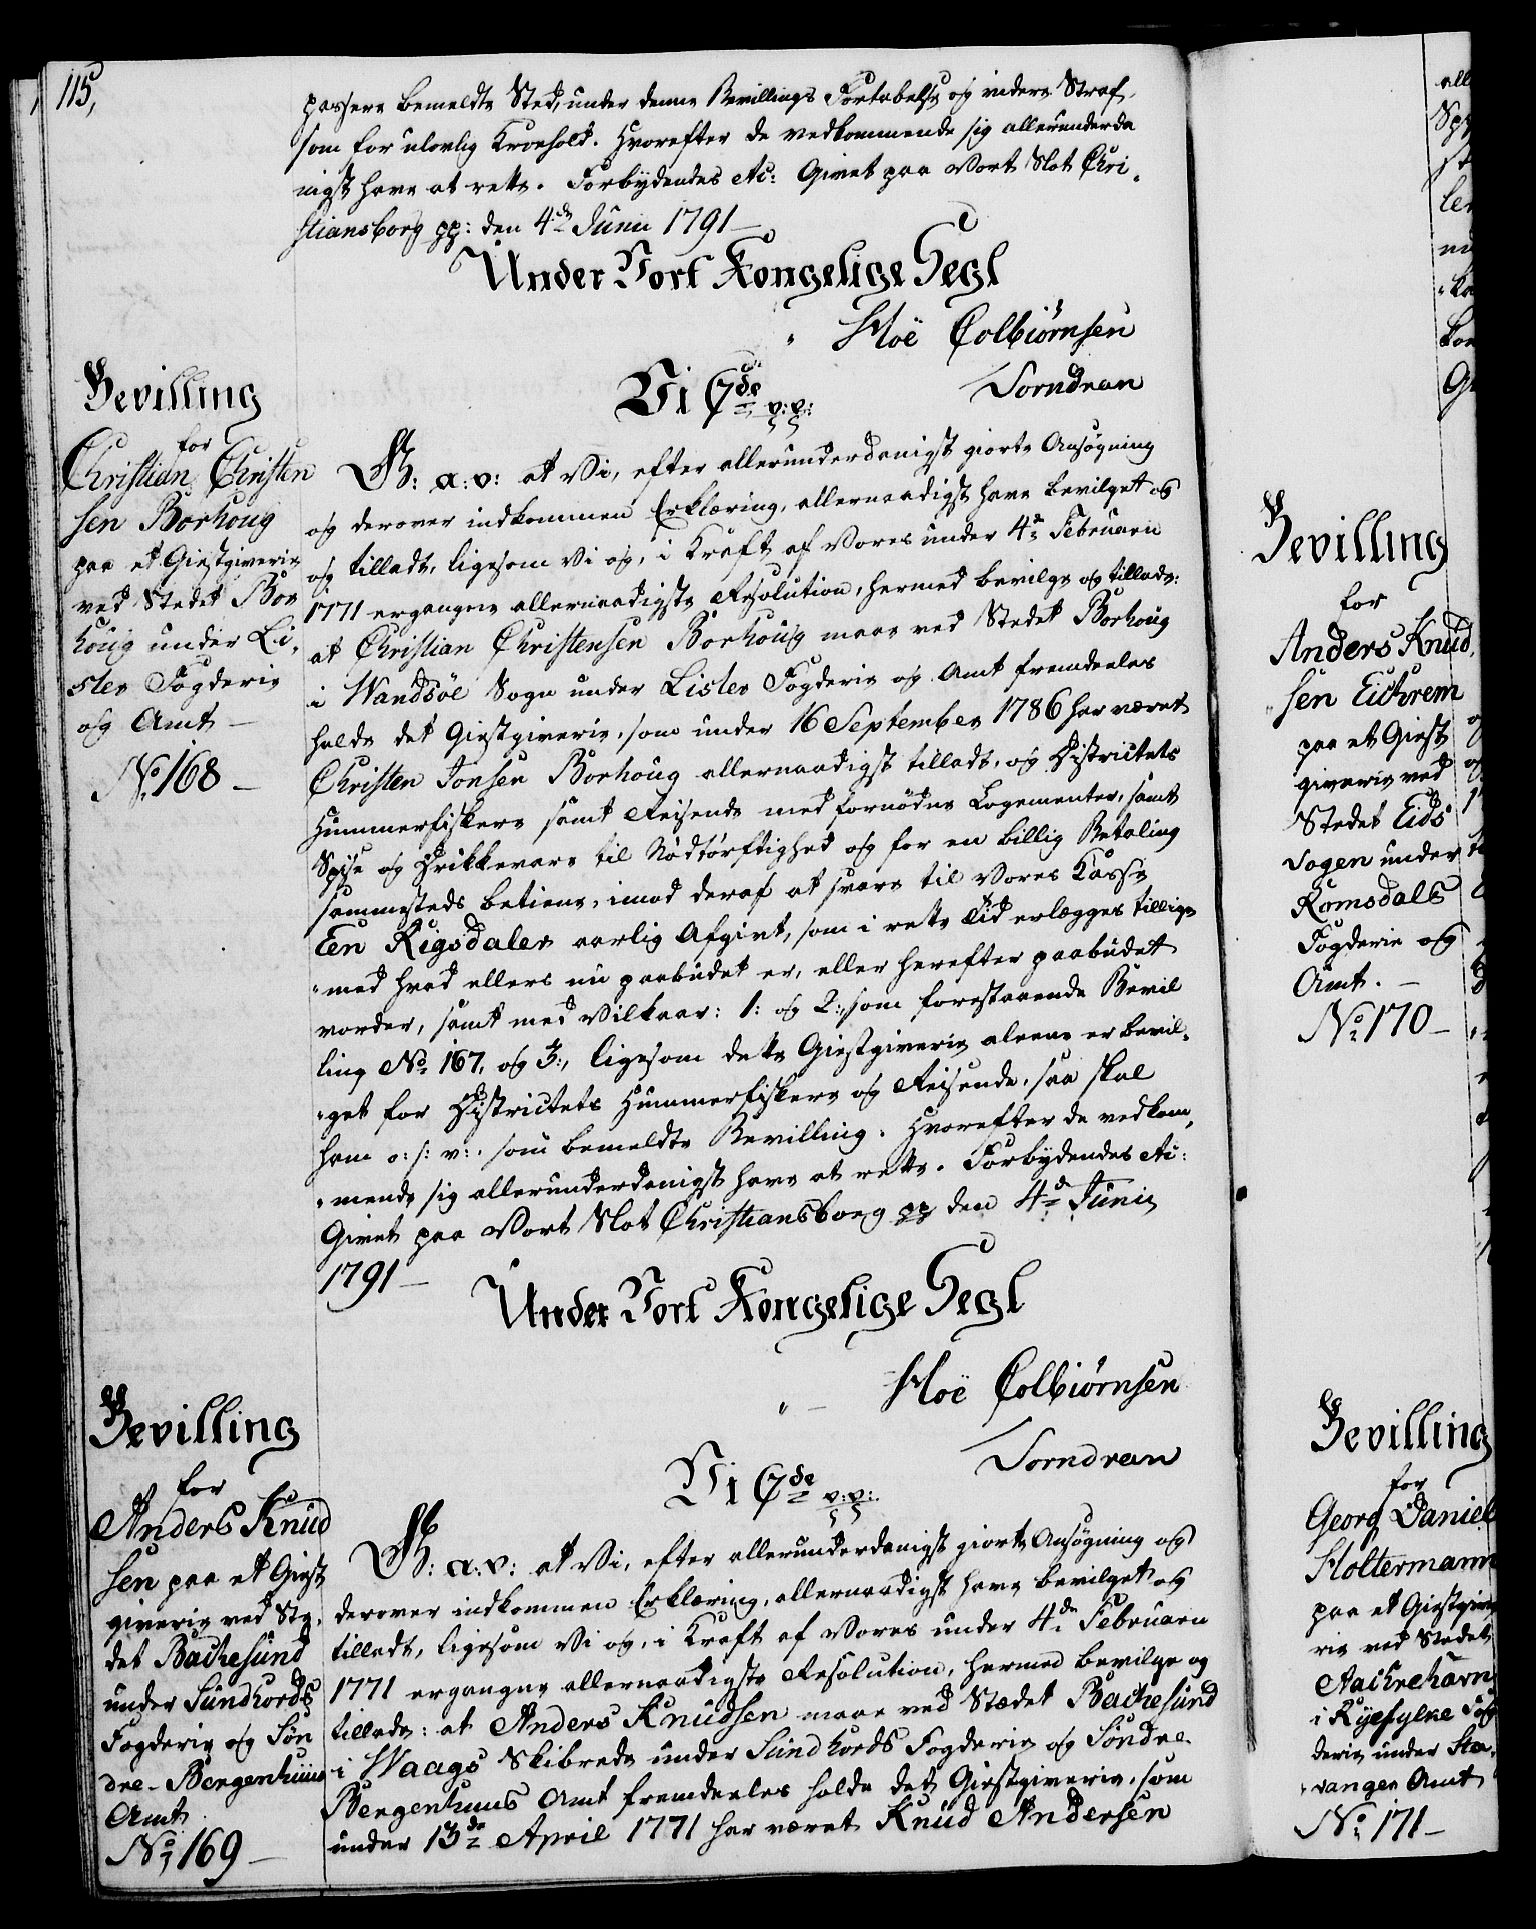 115,
passere bemeldte Sted, under denne Bevillings Fortabelse og videre Straf,
som for ulovlig Kroehold. Hvorefter de vedkommende sig allerunderda
nigst have at rette. Forbydendes etc: Givet paa Vort Slot Chri-
stiansborg pp: den 4de Junii 1791 —
Under Vort Kongelige Segl
Hoë Colbiørnsen
Dorndran
Bevilling
for
Christian Christen
sen Borhoug
paa et Giestgiverie
ved Stedet Bor
houg under Li-
ster Fogderie
og Amt —
No. 168 —
Vi C 7de v:v:
G: a: v: at Vi, efter allerunderdanigst giorte Ansøgning
og derover indkommen Erklæring, allernaadigst have bevilget og
og tilladt, ligesom Vi og, i Kraft af Vores under 4de Februarii
1771 ergangne allernaadigste Resolution, hermed bevilge og tillade:
at Christian Christensen Borhoug maae ved Stedet Borhoug
i Wandsøe Sogn under Lister Fogderie og Amt fremdeeles
holde det Giestgiverie, som under 16 September 1786 har været
Christen Jonsen Borhoug allernaadigst tilladt, og Districtets
Hummerfiskere samt Reisende med fornødne Logementer, samt
Spise og Drikkevare til Nødtørftighed og for en billig Betaling
sammesteds betiene, imod deraf at svare til Vores Kasse
Een Rigsdaler aarlig Afgivt, som i rette Tid erlægges tillige
med hvad ellers nu paabudet er, eller herefter paabudet
vorder, samt med Vilkaar: 1: og 2:, som forestaaende Bevil
ling No. 167, og 3:, ligesom dette Giestgiverie aleene er bevil-
get for Districtets Hummerfiskere og Reisende, saa skal
ham o: s: v:. som bemeldte Bevilling. Hvorefter de vedkom-
mende sig allerunderdanigst have at rette. Forbydendes etc:
Givet paa Vort Slot Christiansborg pp den 4de Junii
1791 —
Under Vort Kongelige Segl
Hoë Colbiørnsen
Dorndran
Bevilling
for
Anders Knud
sen paa et Giest
giverie ved Ste-
det Bachesund
under Sundhords
Fogderie og Søn
dre Bergenhuus
Amt
No. 169 —
Vi C 7de v:v:
G: a: v: at Vi, efter allerunderdanigst giorte Ansøgning og
derover indkommen Erklæring, allernaadigst have bevilget og
tilladt, ligesom Vi og, i Kraft af Vores under 4de Februarii
1771 ergangne allernaadigste Resolution, hermed bevilge og
tillade: at Anders Knudsen maae ved Stædet Bachesund
i Waags Skibrede under Sundhords Fogderie og Søndre
Bergenhuus Amt fremdeeles holde det Giestgiverie, som
under 13de April 1771 har været Knud Andersen
Bevilling
for
Anders Knud-
sen Eichrem
paa et Giest
giverie ved
Stedet Eids
vogen under
Romsdals
Fogderie og
Amt. —
No. 170 —
Bevilling
for
Georg Daniel
Holtermann
paa et Giestgive
rie ved Stedet
Aachrehavn
i Ryefylke Fog
derie under Sta-
vanger Amt
No. 171 —